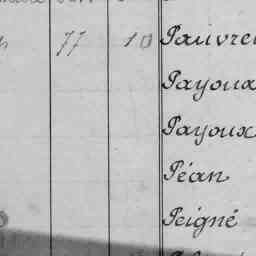 77 10 Pauvre
Payoux
Payoux
Péan
Peigné